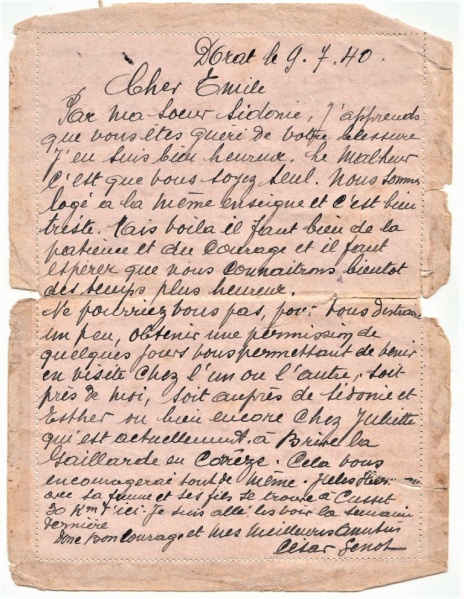 Dorat le 9.7.40.
Cher Emile
Par ma soeur Sidonie, j'apprends
que vous êtes guéri de votre blessure
J'en suis bien heureux. Le malheur
c'est que vous soyez seul. Nous sommes
logé à la même enseigne et c'est bien
triste. Mais voila il faut bien de la
patience et du courage et il faut
espérer que nous connaitrons bientot
des temps plus heureux.
Ne pourriez vous pas, pour vous distraire
un peu, obtenir une permission de
quelques jours vous permettant de venir
en visite chez l'un ou l'autre, soit
près de moi, soit auprès de Sidonie et
Esther ou bien encore chez Juliette
qui est actuellement à Brive la
Gaillarde en Corèze. Cela vous
encouragerai tout de même. Jules
avec sa femme et ses fils se trouve à Cusset
30 Km d'ici. Je suis allé les voir la semaine
dernière
Donc Bon courage et mes meilleures amitiés
César Genot